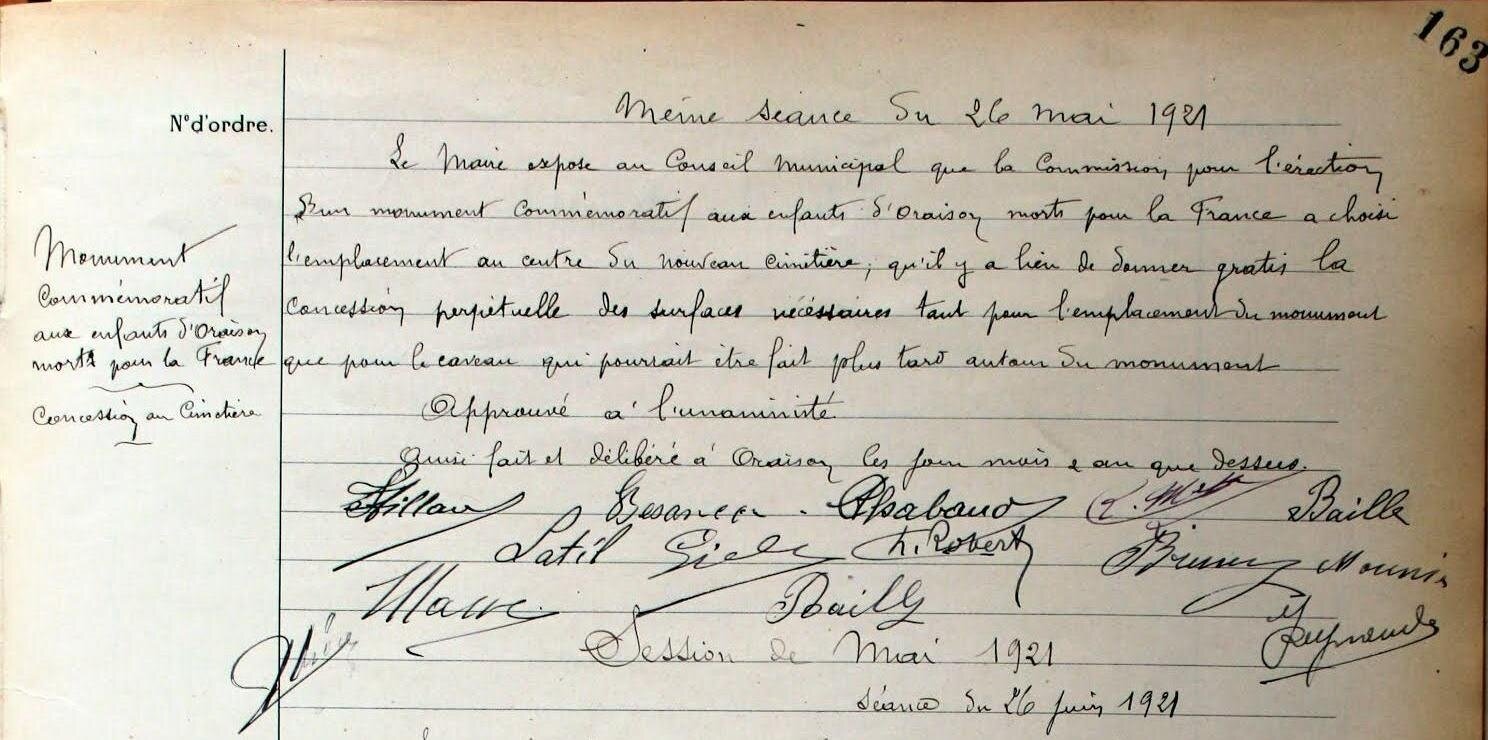 163
N° d'ordre.
Même séance du 26 mai 1921
Le Maire expose au Conseil Municipal que la Commission pour l'érection
d'un monument commémoratif aux enfants d'Oraison morts pour la France a choisi
l'emplacement au centre du nouveau cimetière; qu'il y a lieu de donner gratis la
concession perpétuelle des surfaces nécéssaires tant pour l'emplacement du monument
que pour le caveau qui pourrait être fait plus tard autour du monument
Monument
Commémoratif
aux enfants d'Oraison
morts pour la France
Concession au Cimetière
Approuvé à l'unanimité
Ainsi fait et délibéré à Oraison les jour mois e an que dessus.
Chabaud Baille
Latil Robert Mounier
Bailly
Session de Mai 1921
séance du 26 juin 1921